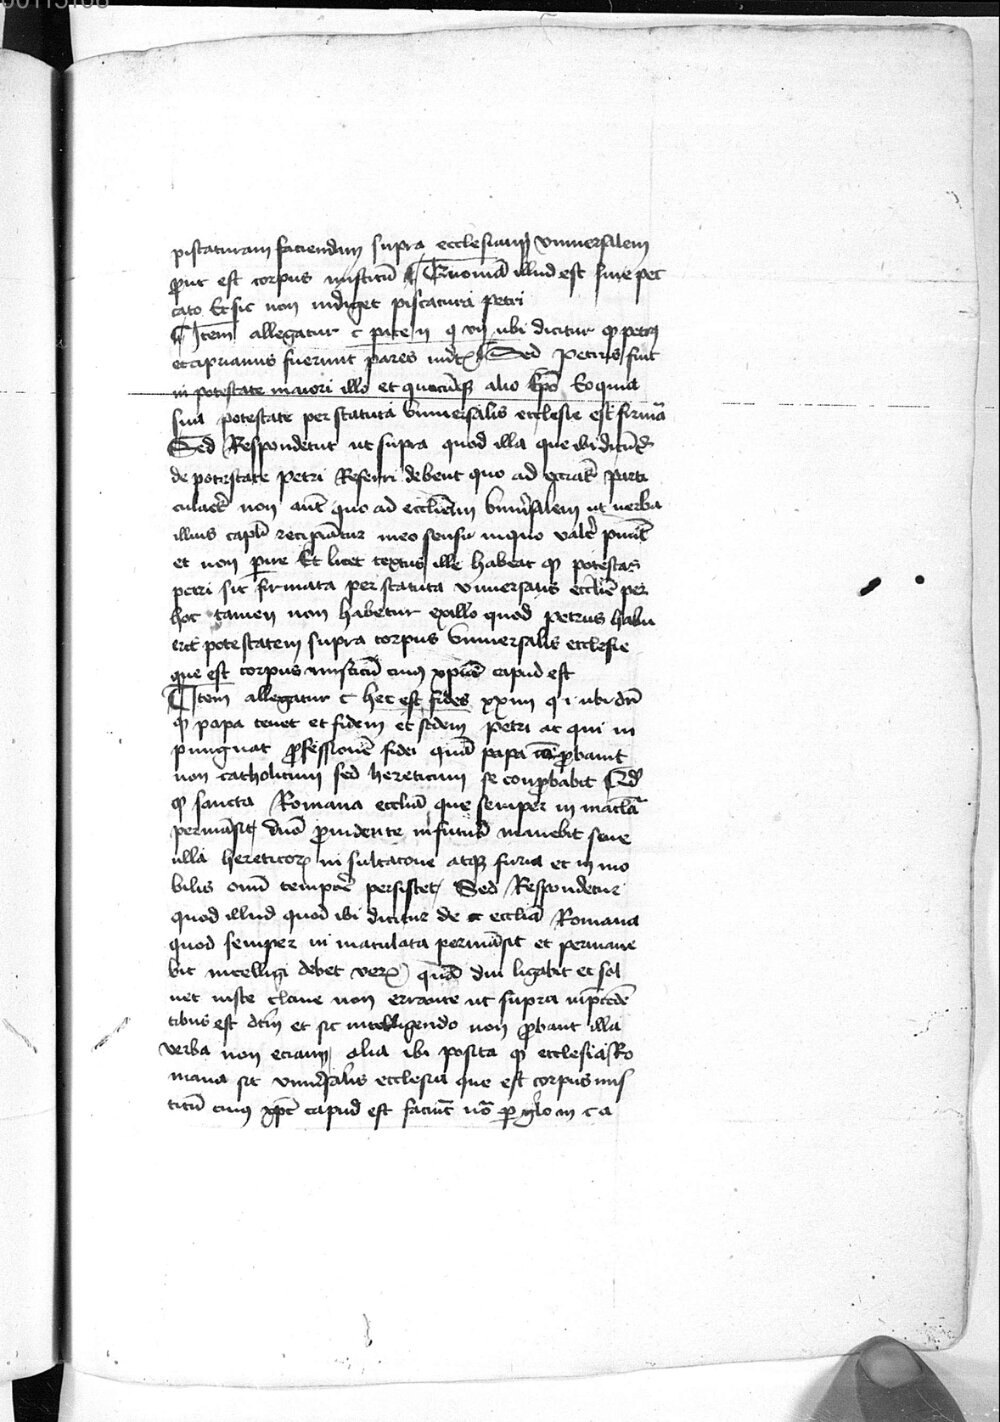 piscaturam faciendam supra ecclesiam vniuersalem
prout est corpus misticū Quoniā illud est sine pec
cato Et sic non indiget piscatura petri
Item allegatur c pute ij q vij ubi dicitur qꝫ petrꝰ
et ciprianus fuerunt pares Sed Petrus fuit
in potestate maiori illo et quocūqꝫ alio Eo quia
sua potestate per statuta vniuersalis ecclesie est firmā
Sed Respondetur ut supra quod illa que ibi dicūtꝰ
de potestate petri Referri debent quo ad parti
culares non autē quo ad ecclesiam vniūsalem ut verba
illius capli recipiātur meo sensu inquo valēt
et non Et licet textus ille habeat qꝫ potestas
petri sit firmata per statuta vniuersalis ecclīe per
hoc tamen non habetur ex illo quod petrus habu
erit potestatem supra corpus vniuersalis ecclesie
que est corpus misticū cuiꝰ xpūs capud est
Item allegatur c hec est fides xxiiij q i ubi dr̄
qꝫ papa tenet et fidem et sedem petri ac qui in
pungnat professionē fidei quā papa cōprobauit
non catholicum sed hereticum se conprobabit Et
qꝫ sancta Romana ecclīa que semper in maclā
permāsit dn̄o prouidente in futurū manebit sine
ulla hereticorꝫ in sultacone atqꝫ furia et in mo
bilis omī tempore persistet Sed Respondetur
quod illud quod ibi dicitur de ecclīa Romana
quod semper in maculata permāsit et permane
bit intelligi debet verꝫ quād diu ligabit et sol
uet iuste claue non errante ut supra in p̄cedē
tibus est dc̄m et sic intelligendo non probant illa
verba non eciam alia ibi posita qꝫ ecclesia Ro
mana sit vniūsalis ecclesia que est corpus mis
ticū cuiꝰ xpc̄ capud est faciūt nō per glo in c a